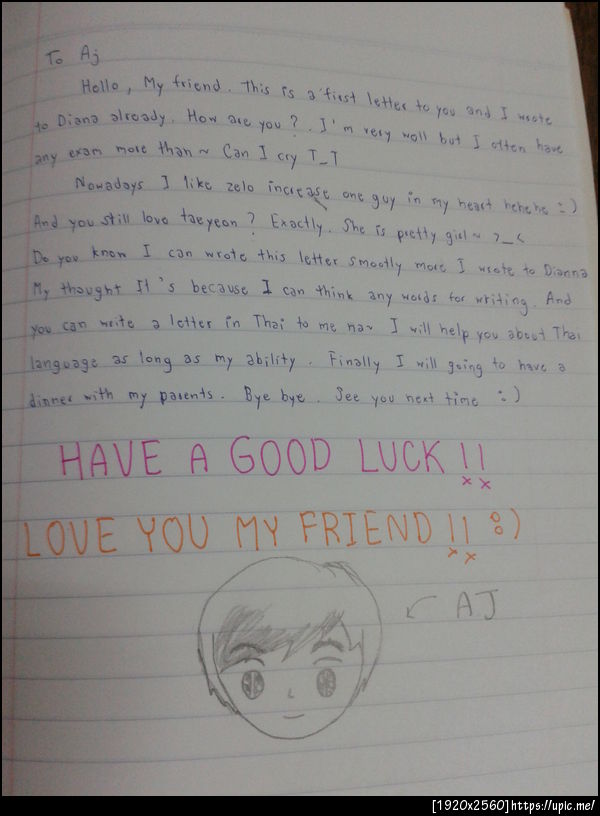 To Aj
Hello, My friend. This is a first letter to you and I wrote
to Diana already. How are you?. I'm very well but I often have
any exam more than ~ Can I cry T_T
Nowadays I like zelo increase one guy in my heart hehehe :)
And you still love taeyeon? Exactly. She is pretty girl ~ >_<
Do you know I can wrote this letter smootly more I wrote to Dianna
My thought It's because I can think any words for writing. And
you can write a letter in Thai to me na~ I will help you about Thai
language as long as my ability. Finally I will going to have a
dinner with my parents. Bye bye. See you next time :)
HAVE A GOOD LUCK !!
x x
LOVE YOU MY FRIEND !! :)
x x
AJ
[1920x2560]https://upic.me/